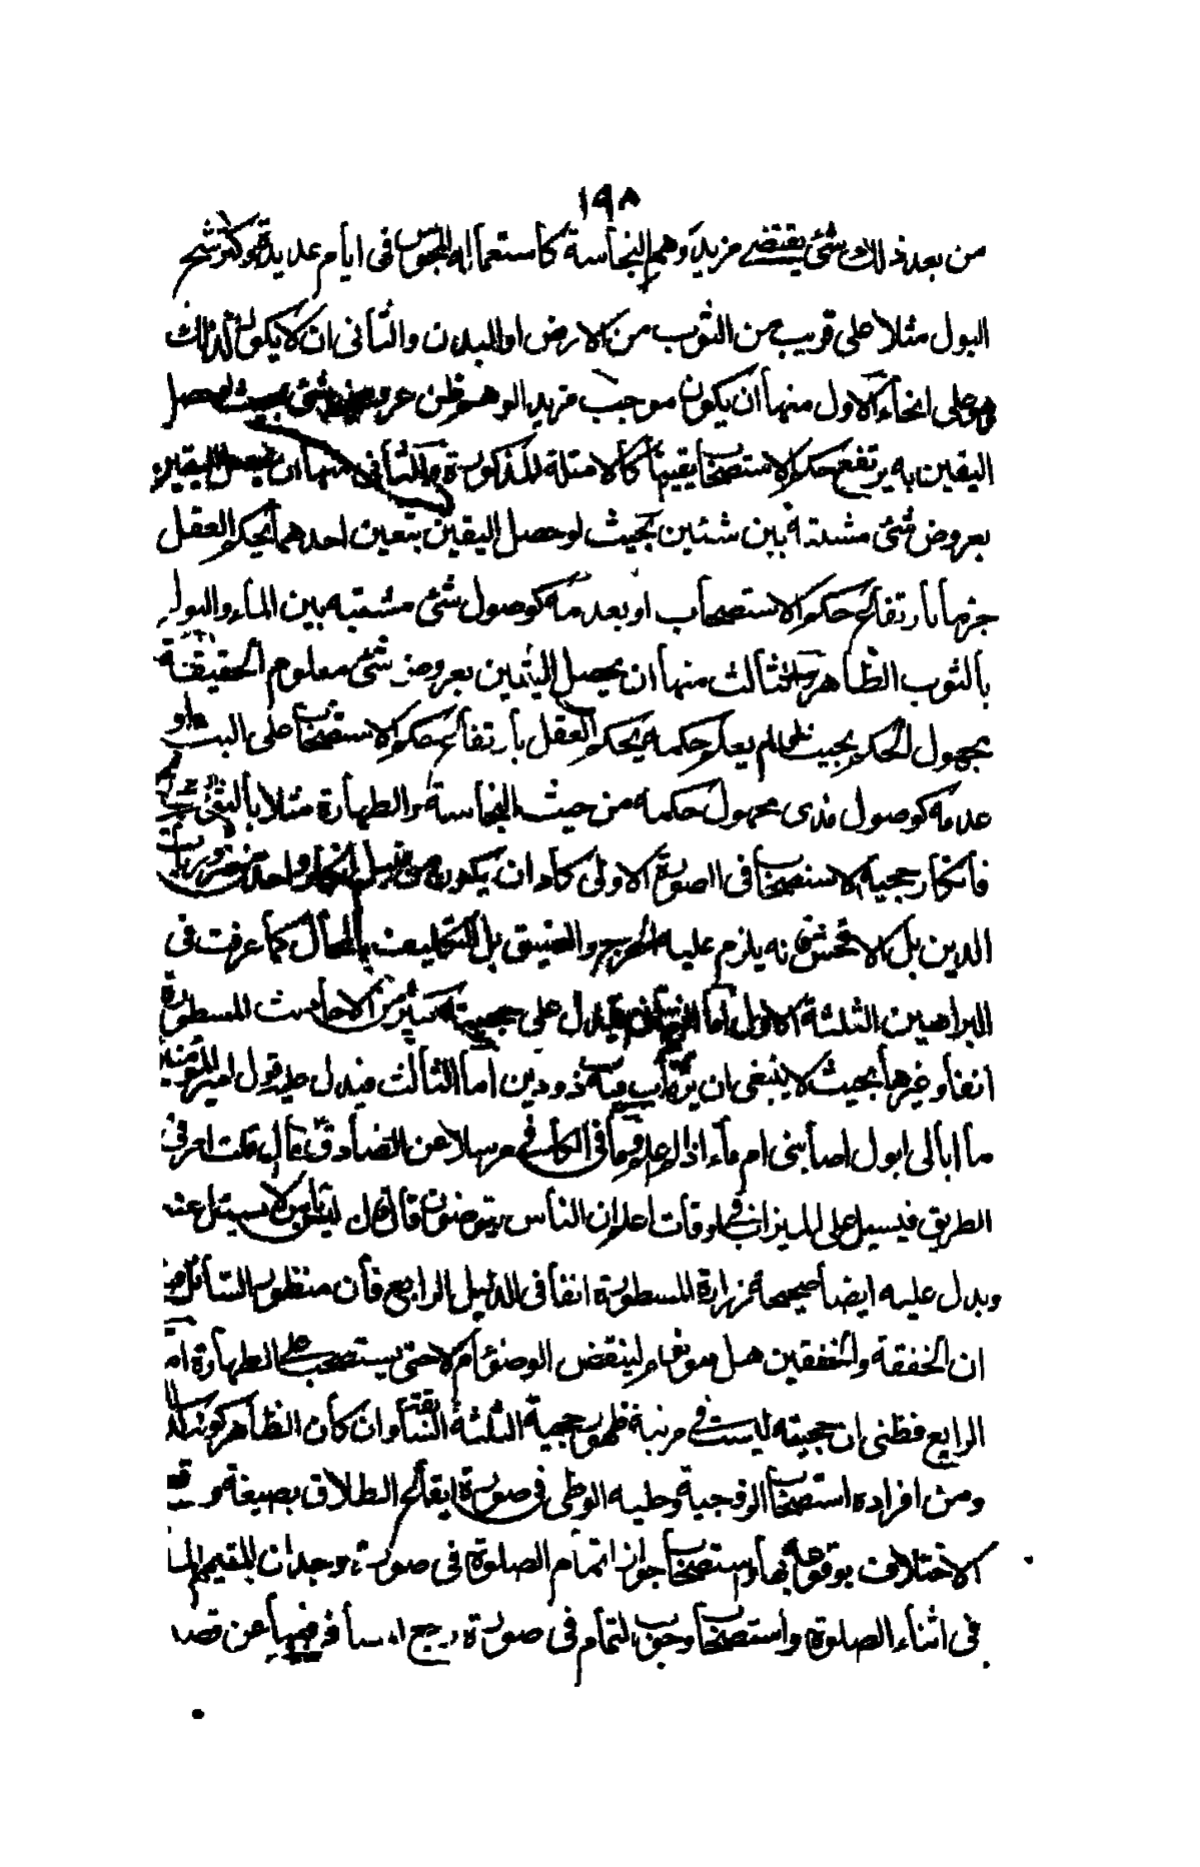 ١٩٨
من بعد ذلك شئ يقتضي مزيد وهم النجاسة كاستعماله المجوس في ايام عديدة وكترشح
البول مثلا على قريب من الثوب من الارض او البدن والثاني ان لا يكون كذلك
وهو على انحاء الاول منها ان يكون موجب مزيد الوهم ظن عروض شئ بحيث لو حصل
اليقين به يرتفع حكم الاستصحاب يقينا كالامثلة المذكورة والثاني منها ان يحصل اليقين
بعروض شئ مشتبه بين شئين بحيث لو حصل اليقين بتعين احدهما يحكم العقل
جزما بارتفاع حكم الاستصحاب او بعدمه كوصول شئ مشتبه بين الماء والبول
بالثوب الطاهر والثالث منها ان يحصل اليقين بعروض شئ معلوم الحقيقة
مجهول الحكم بحيث لم يعلم حكمه يحكم العقل بارتفاع حكم الاستصحاب على البت او
عدمه كوصول مذى مجهول حكمه من حيث النجاسة والطهارة مثلا بالثوب
فانكار حجية الاستصحاب في الصورة الاولى كاد ان يكون من قبيل انكار واحد من ضروريات
الدين بل الا فحش فانه يلزم عليه الحرج والضيق بل التكليف بالمحال كما عرفت في
البراهين الثلثة الاول اما الثاني فيدل على حجيته كثير من الاحاديث المسطورة
انفا وغيرها بحيث لا ينبغي ان يرتاب فيه ذو دين اما الثالث فيدل عليه قول امير المؤمنين
ما ابالى ابول اصابنى ام ماء اذا لم اعلم وما في الكافي مرسلا عن الصادق قال قلت امر في
الطريق فيسيل على الميزاب في اوقات اعلم ان الناس يتوضئون قال قال ليس به باس لا تسئل عنه
ويدل عليه ايضا صحيحة زرارة المسطورة انفا في الدليل الرابع فان منظور السائل
ان الخفقة والخفقتين هل هو لينقض الوضوء ام لا حتى يستصحب الطهارة اما
الرابع فظنى ان حجيته ليست في مرتبة ظهور حجية الثلثة السابقة وان كان الظاهر كونه كذلك
ومن افراده استصحاب الزوجية وحلية الوطى في صورة ايقاع الطلاق بصيغة وقع
الاختلاف بوقوعه بها واستصحاب جواز اتمام الصلوة في صورة وجدان المتيمم الماء
في اثناء الصلوة واستصحاب وجوب التمام في صورة رجع المسافر فيها عن قصد